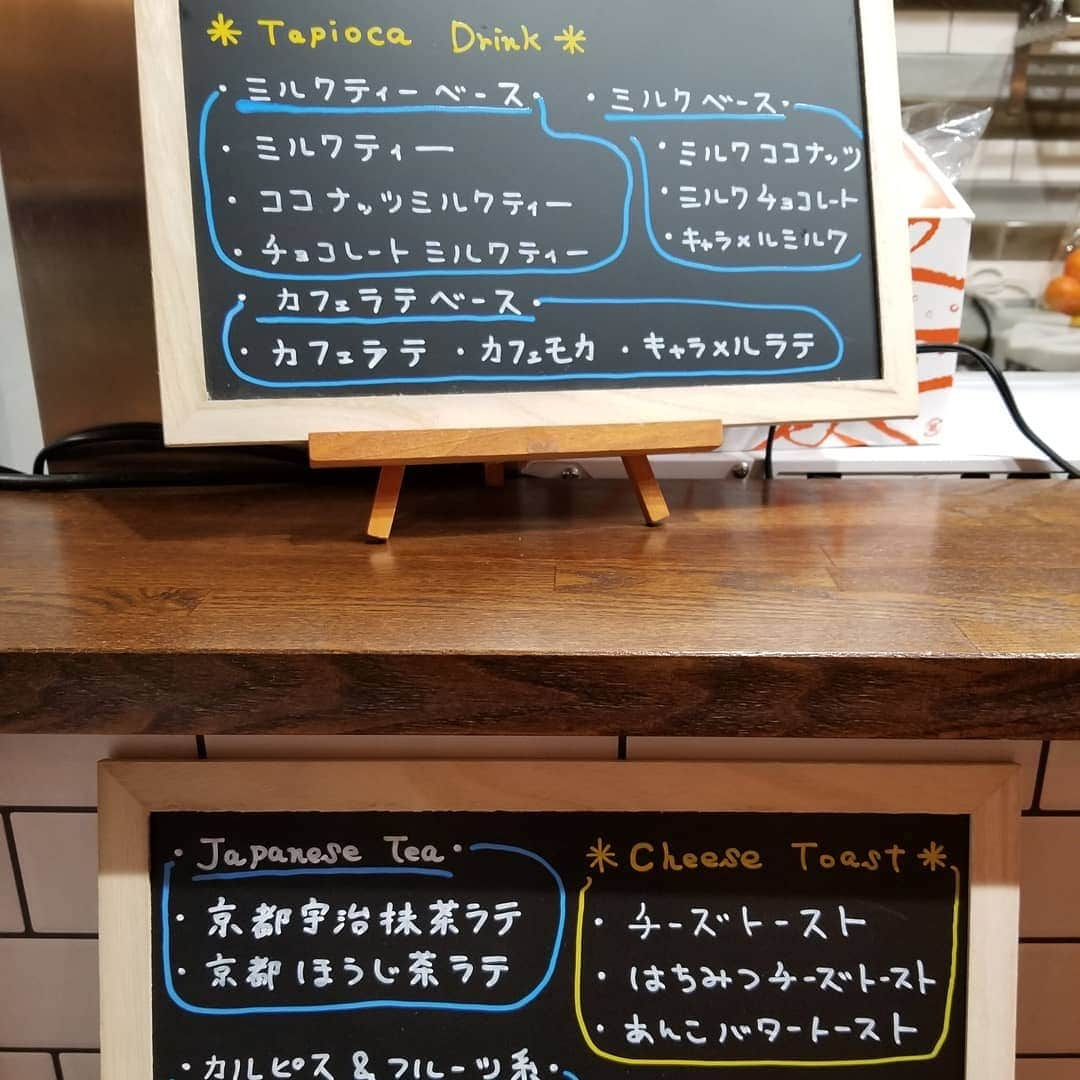 * Tapioca Drink *
・ミルクティーベース・
・ミルクティー
・ココナッツミルクティー
・チョコレートミルクティー
・ミルクベース・
・ミルクココナッツ
・ミルクチョコレート
・キャラメルミルク
・カフェラテベース・
・カフェラテ ・カフェモカ ・キャラメルラテ
・Japanese Tea・
・京都宇治抹茶ラテ
・京都ほうじ茶ラテ
* Cheese Toast *
・チーズトースト
・はちみつチーズトースト
・あんこバタートースト
・カルピス&フルーツ系・